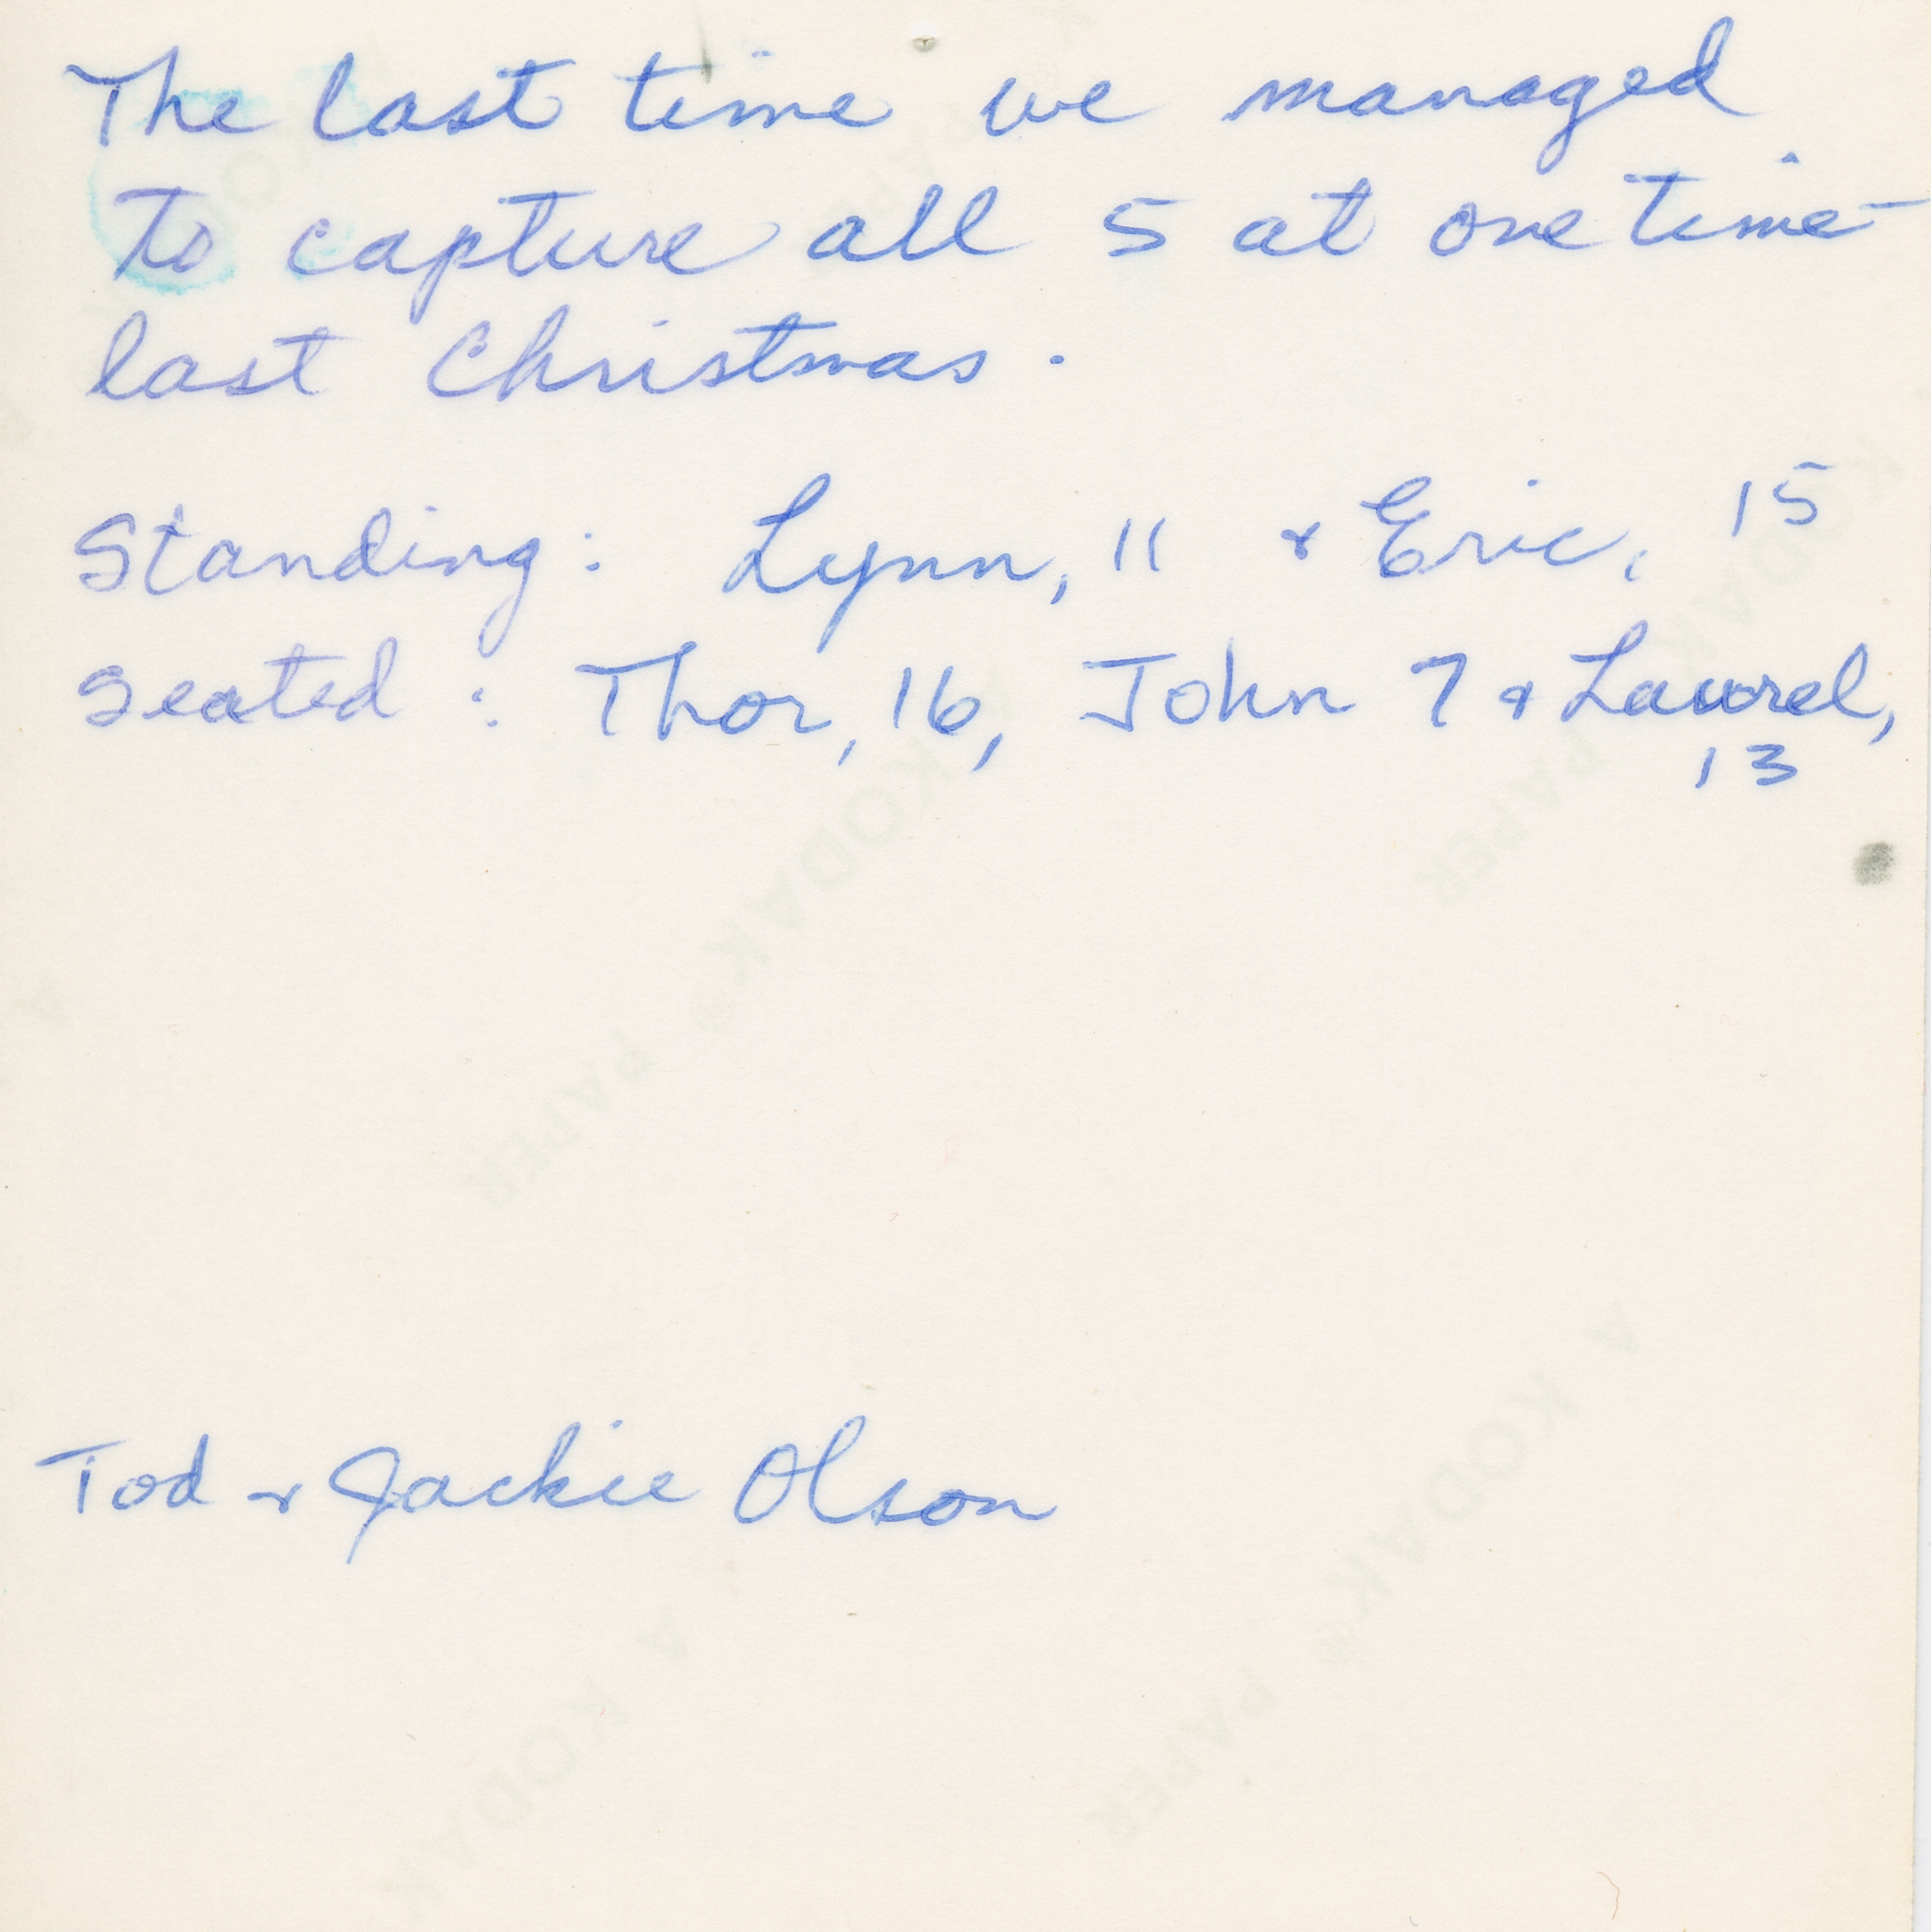 The last time we managed
to capture all 5 at one time –
last Christmas.
Standing: Lynn, 11 & Eric, 15
Seated: Thor, 16, John 7 & Laurel,
13
Tod & Jackie Olson
A KODAK® PAPER
A KODAK® PAPER
A KODAK